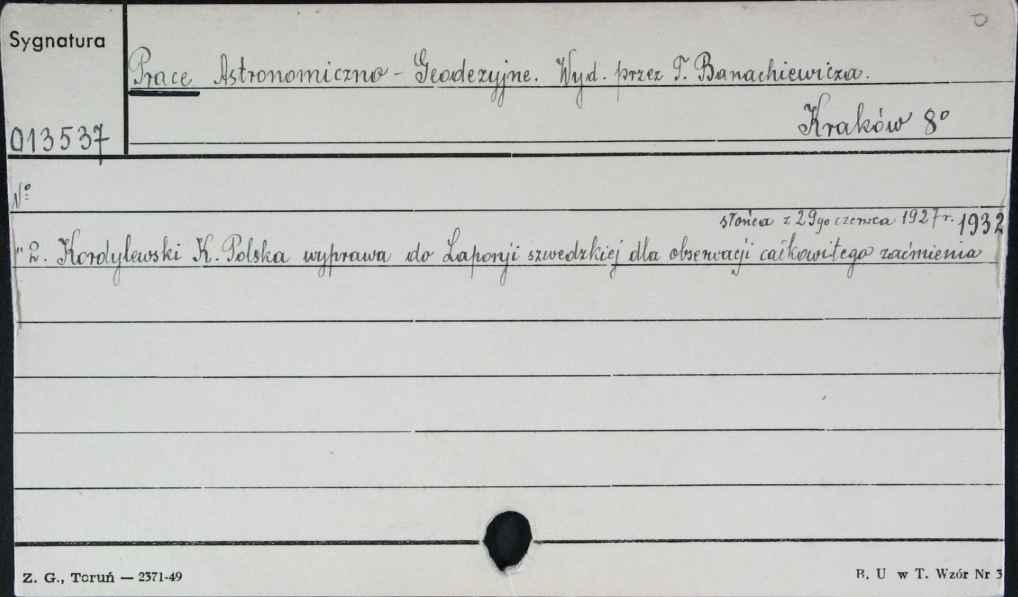 Sygnatura
Prace Astronomiczno - Geodezyjne. Wyd. przez T. Banachiewicza.
013537
Kraków 8°
N°
słońca z 29go czerwca 1927 r. 1932
" 2. Kordylewski K. Polska wyprawa do Laponji szwedzkiej dla obserwacji całkowitego zaćmienia
Z. G., Toruń — 2371-49
B. U w T. Wzór Nr 3